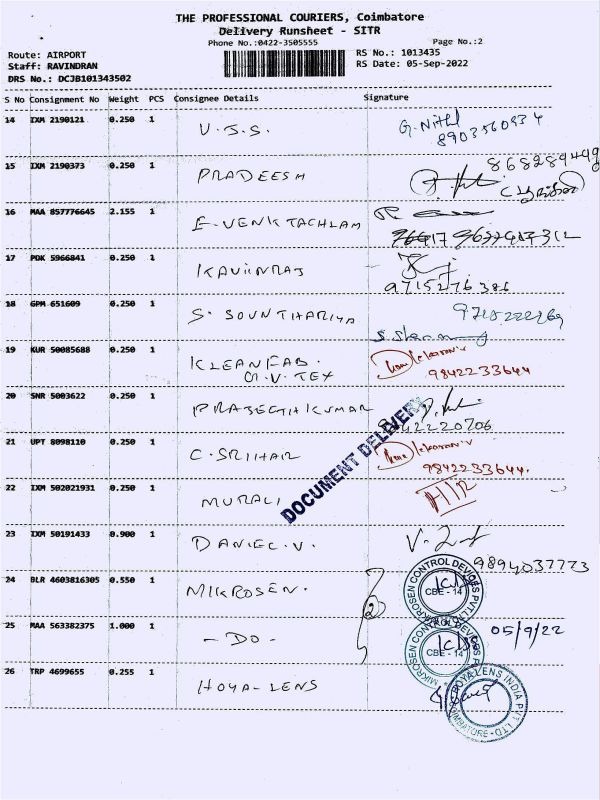 THE PROFESSIONAL COURIERS, Coimbatore
Delivery Runsheet - SITR
Phone No.:0422-3505555
Page No.:2
Route: AIRPORT
RS No.: 1013435
Staff: RAVINDRAN
RS Date: 05-Sep-2022
DRS No.: DCJB101343502
S No Consignment No Weight PCS Consignee Details Signature
14 IXM 2190121 0.250 1 V.S.S. G. Nithil
8903560934
15 IXM 2190373 0.250 1 PRADEESH 868289449
16 MAA 857776645 2.155 1 E-VENKTACHLAM
17 POK 5966841 0.250 1 KAVIINRAJ
9715276386
18 GPM 651609 0.250 1 S. SOUNTHARIYA 9718222269
19 KUR 50085688 0.250 1 KLEANFAB.
G.V. TEX 9842233644
20 SNR 5003622 0.250 1 PRAJEETHKUMAR
9842220706
21 UPT 8098110 0.250 1 C. SRIIHAR
9842233644.
DOCUMENT DELIVERY
22 IXM 502021931 0.250 1 MURALI
23 IXM 50191433 0.900 1 DANIEL.V.
9894037773
24 BLR 4603816305 0.550 1 MIKROSEN. 2
MIKROSEN CONTROL DEVICES PVT LTD
CBE - 14
25 MAA 563382375 1.000 1 - DO - 05/9/22
MIKROSEN CONTROL DEVICES
CBE - 14
26 TRP 4699655 0.255 1 HOYA-LENS
HOYA LENS INDIA PVT LTD
COIMBATORE